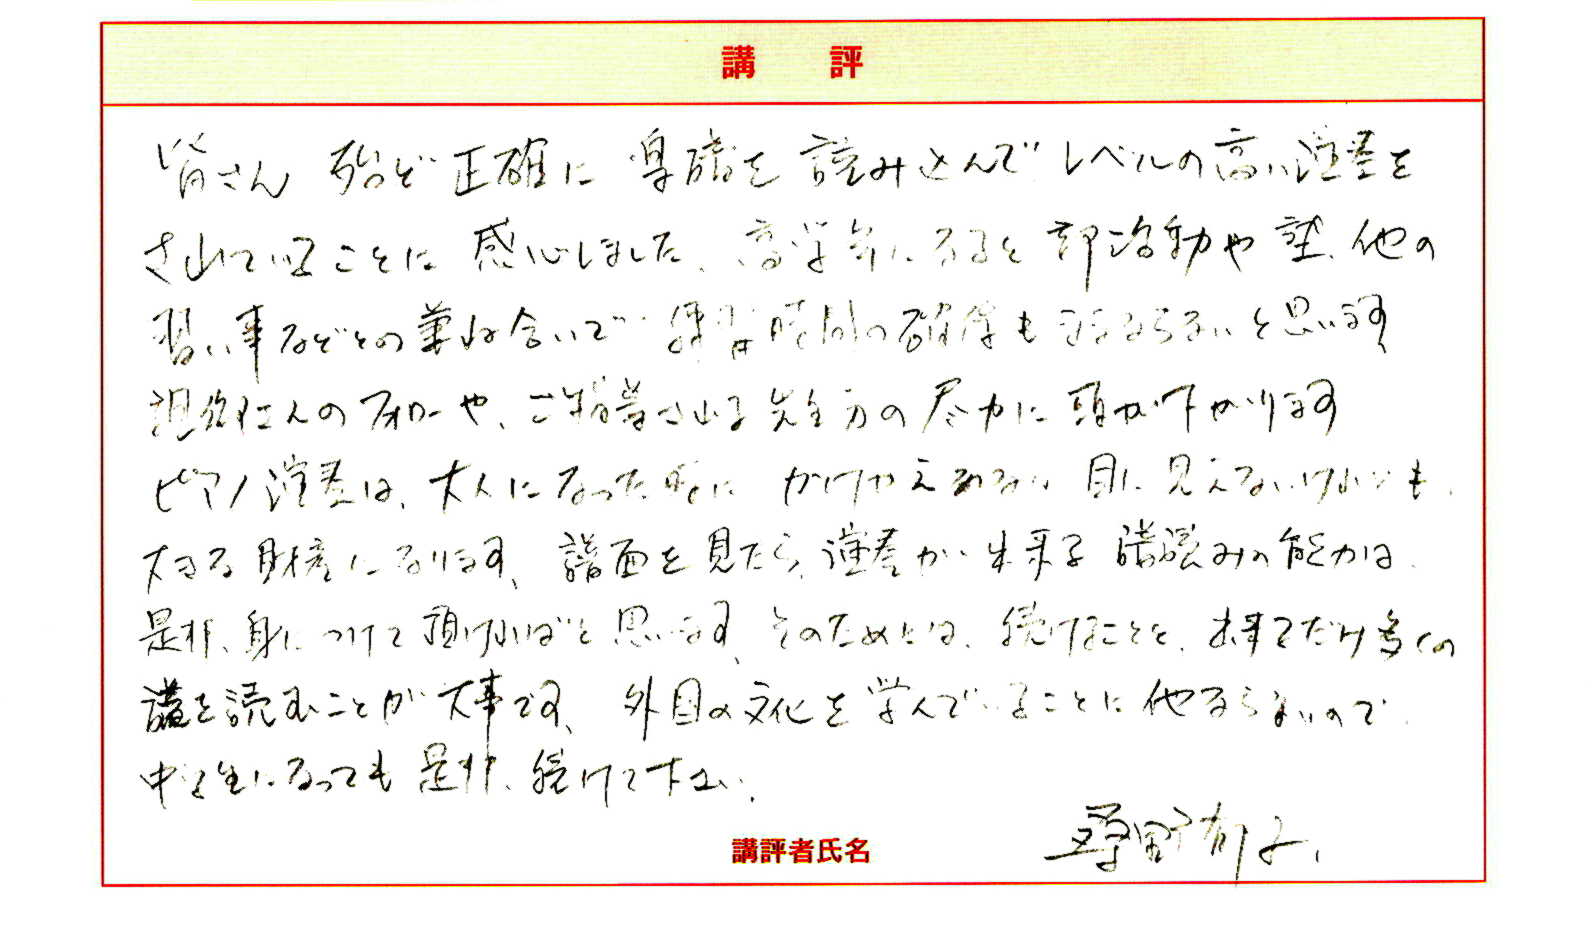 講 評
皆さん 殆ど正確に 楽譜を 読み込んで レベルの高い演奏を
されていることに 感心しました、高学年になると 部活動や 塾、他の
習い事などとの兼ね合いで 練習時間の確保も ままならないと思います、
担任の フォローや、ご指導される 先生方の 尽力に 頭が下がります
ピアノ演奏は、大人になった時に かけがえのない 目に見えないけれども、
大きな 財産になります、譜面を 見たら、演奏が出来る 譜読みの能力は、
是非、身につけて 頂ければと 思います、そのためには、続けることと、出来るだけ多くの
譜を読むことが 大事です、外国の文化を 学んでいることに 他ならないので、
中学生になっても 是非、続けて下さい、
講評者氏名
桑野郁子